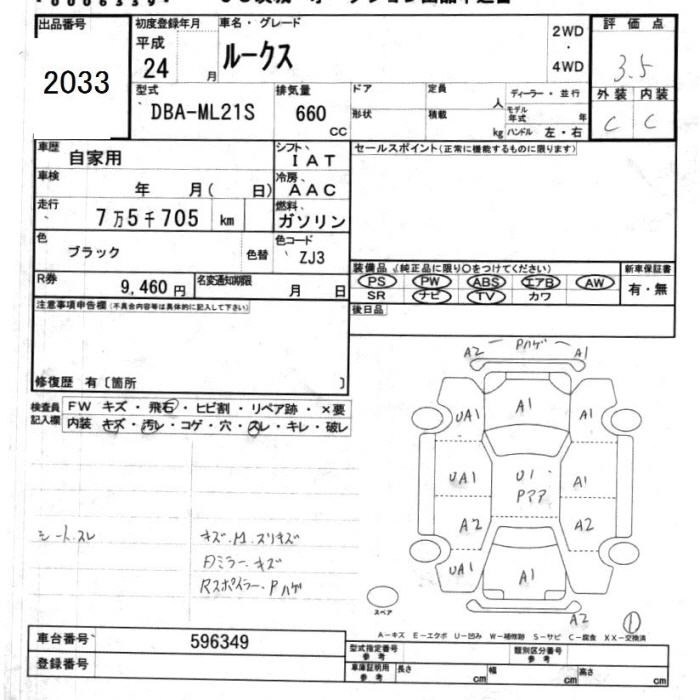 出品番号 初度登録年月 車名・グレード 2WD・4WD 評価点
2033 平成24月 ルークス 3.5
型式 DBA-ML21S 排気量 660 CC ドア 定員 人 ディーラー・並行 外装 内装
形状 積載 kg モデル年式 年 ハンドル 左・右 C C
車歴 自家用 シフト IAT セールスポイント(正常に機能するものに限ります)
車検 年 月( 日) 冷房 AAC
走行 7万5千705 km 燃料 ガソリン
色 ブラック 色替 色コード ZJ3
装備品 (純正品に限り〇をつけてください) 新車保証書
R券 9,460円 名変通知期限 月 日 PS PW ABS エアB AW 有・無
SR ナビ TV カワ
注意事項申告欄(不具合内容等は具体的に記入して下さい) 後日品
修復歴 有〔箇所 〕
検査員記入欄 FW キズ・飛石・ヒビ割・リペア跡・×要
内装 キズ・汚レ・コゲ・穴・スレ・キレ・破レ
A2 Pハゲ A1
UA1 A1 A1
UA1 U1 A1
A2 A2
UA1 A1
A2
シート.スレ キズ.M.スリキズ
Rスポイラー.Pハゲ
スペア
A-キズ E-エクボ U-凹み W-補修跡 S-サビ C-腐食 XX-交換済
車台番号 596349
登録番号
型式指定番号 参考 類別区分番号 参考
車庫証明用 参考 長さ cm 幅 cm 高さ cm